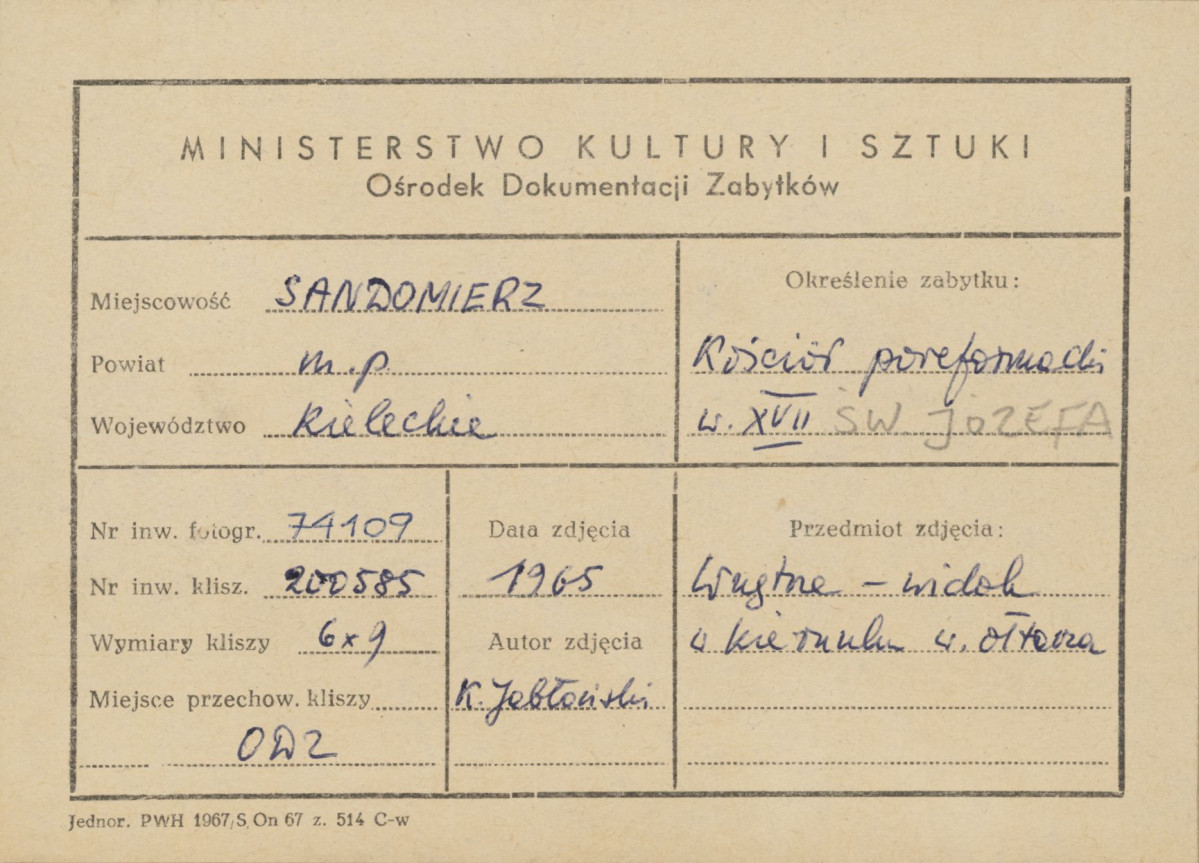 MINISTERSTWO KULTURY I SZTUKI
Ośrodek Dokumentacji Zabytków
Miejscowość SANDOMIERZ
Powiat m.p.
Województwo kieleckie
Określenie zabytku:
Kościół poreformacki
w. XVII ŚW. JÓZEFA
Nr inw. fotogr. 74109
Nr inw. klisz. 200585
Wymiary kliszy 6x9
Miejsce przechow. kliszy
ODZ
Data zdjęcia
1965
Autor zdjęcia
K. Jabłoński
Przedmiot zdjęcia:
Wnętrze – widok
w kierunku w. ołtarza
Jednor. PWH 1967/S. On 67 z. 514 C-w